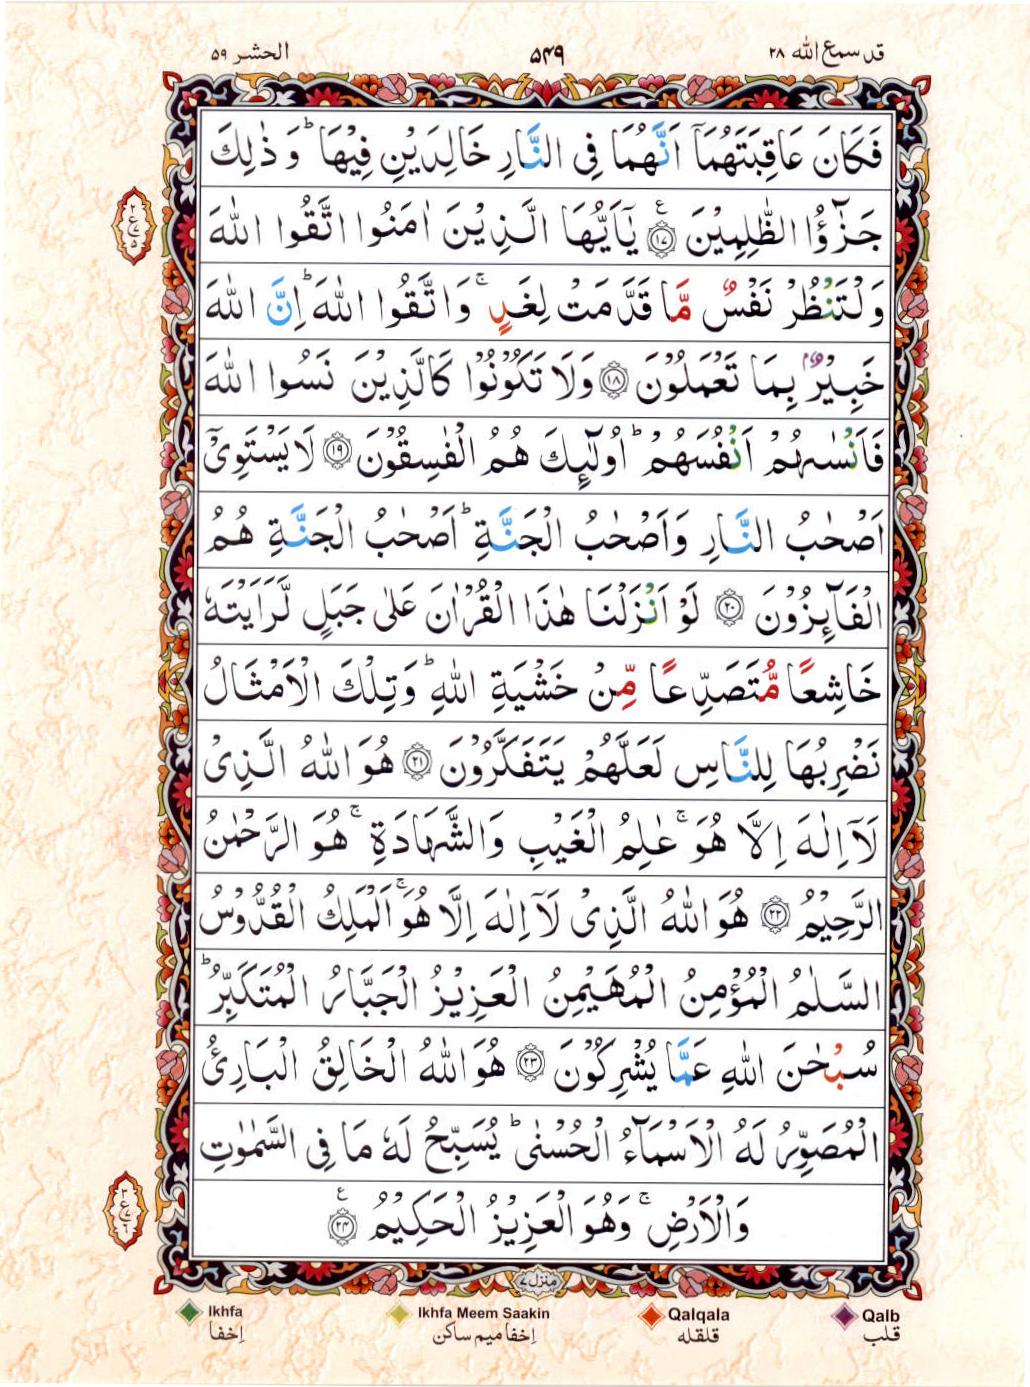 قد سمع الله ۲۸
۵۴۹
الحشر ۵۹
فَكَانَ عَاقِبَتَهُمَاۤ اَنَّهُمَا فِى النَّارِ خَالِدَيْنِ فِيْهَا ؕ وَ ذٰلِكَ
جَزٰٓؤُا الظّٰلِمِيْنَ ۧ ﴿۱۷﴾ يٰۤاَيُّهَا الَّذِيْنَ اٰمَنُوا اتَّقُوا اللّٰهَ
وَلْتَنْظُرْ نَفْسٌ مَّا قَدَّمَتْ لِغَدٍ ۚ وَاتَّقُوا اللّٰهَ ؕ اِنَّ اللّٰهَ
خَبِيْرٌۢ بِمَا تَعْمَلُوْنَ ﴿۱۸﴾ وَلَا تَكُوْنُوْا كَالَّذِيْنَ نَسُوا اللّٰهَ
فَاَنْسٰىهُمْ اَنْفُسَهُمْ ؕ اُولٰٓئِكَ هُمُ الْفٰسِقُوْنَ ﴿۱۹﴾ لَا يَسْتَوِىْۤ
اَصْحٰبُ النَّارِ وَاَصْحٰبُ الْجَنَّةِ ؕ اَصْحٰبُ الْجَنَّةِ هُمُ
الْفَآئِزُوْنَ ﴿۲۰﴾ لَوْ اَنْزَلْنَا هٰذَا الْقُرْاٰنَ عَلٰى جَبَلٍ لَّرَاَيْتَهٗ
خَاشِعًا مُّتَصَدِّعًا مِّنْ خَشْيَةِ اللّٰهِ ؕ وَتِلْكَ الْاَمْثَالُ
نَضْرِبُهَا لِلنَّاسِ لَعَلَّهُمْ يَتَفَكَّرُوْنَ ﴿۲۱﴾ هُوَ اللّٰهُ الَّذِىْ
لَاۤ اِلٰهَ اِلَّا هُوَ ۚ عٰلِمُ الْغَيْبِ وَالشَّهَادَةِ ۚ هُوَ الرَّحْمٰنُ
الرَّحِيْمُ ﴿۲۲﴾ هُوَ اللّٰهُ الَّذِىْ لَاۤ اِلٰهَ اِلَّا هُوَ ۚ اَلْمَلِكُ الْقُدُّوْسُ
السَّلٰمُ الْمُؤْمِنُ الْمُهَيْمِنُ الْعَزِيْزُ الْجَبَّارُ الْمُتَكَبِّرُ ؕ
سُبْحٰنَ اللّٰهِ عَمَّا يُشْرِكُوْنَ ﴿۲۳﴾ هُوَ اللّٰهُ الْخَالِقُ الْبَارِئُ
الْمُصَوِّرُ لَهُ الْاَسْمَآءُ الْحُسْنٰى ؕ يُسَبِّحُ لَهٗ مَا فِى السَّمٰوٰتِ
وَالْاَرْضِ ۚ وَهُوَ الْعَزِيْزُ الْحَكِيْمُ ۧ ﴿۲۴﴾
منزل ۷
Ikhfa
اِخفا
Ikhfa Meem Saakin
اِخفا میم ساکن
Qalqala
قلقله
Qalb
قلب